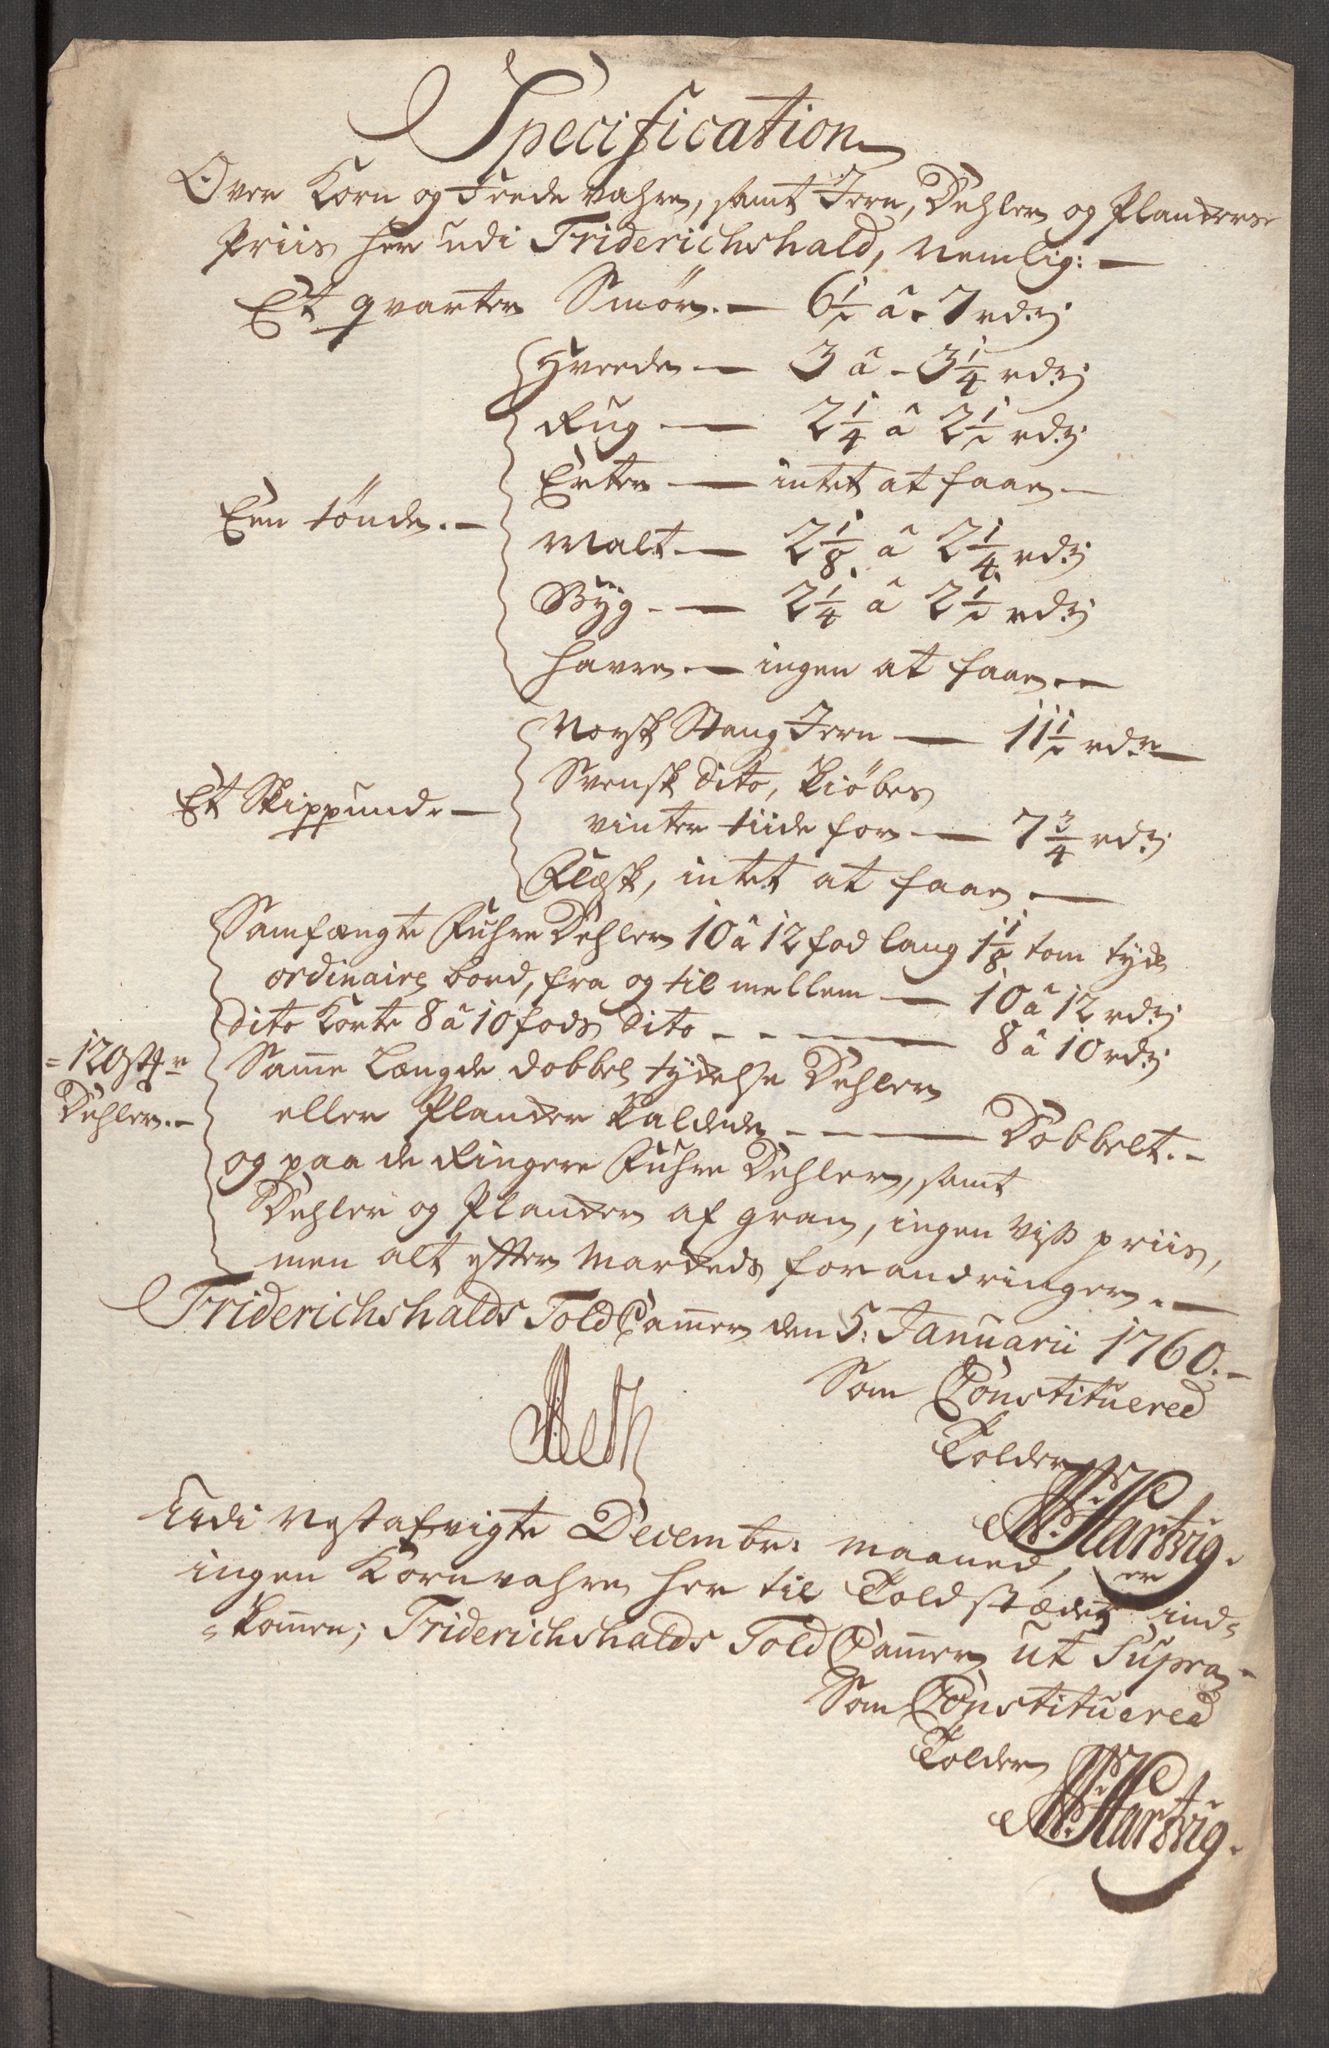 Specification
Over Korn og Feede vahre, samt Jern, Dehler og Planckers
Priis her udi Friderichshald, nemlig:
Et qvarter Smør. — 6 1/2 â 7 rdr
Hveede — 3 â 3 1/4 rdr
Rug — 2 1/4 â 2 1/2 rdr
Erter — intet at faae —
Een tönde. —
Malt — 2 1/8 â 2 1/4 rdr
Byg — 2 1/4 â 2 1/2 rdr
Havre — ingen at faae —
Norsk Stang Jern — 11 1/2 rdr
Svensk dito, kiöbes
Et Skippund —
vinter tiide for — 7 3/4 rdr
Flesk, intet at faae —
Samfængte Fuhre Dehler 10 â 12 fod lang 1 1/8 tom tyck
ordinaire bord, fra og til mellem — 10 â 12 rdr
dito Korte 8 â 10 fods dito — 8 â 10 rdr
120 st
Samme Længde dobbel tydelse Dehler
Dehler. —
eller Plancker kaldede — Dobbelt. —
og paa de Ringere Fuhre Dehler, samt
Dehler og Plancker af gran, ingen viss priis,
men alt efter Markeds forandringer. —
Friderichshalds Told Cammer den 5: Januarii 1760. —
Som Constituered
Tolder
Hartvig.
Udi nestafvigte Decembr: maaned, er
ingen Kornvahre her til Toldstædet ind-
kommen; Friderichshalds Told Cammer ut Supra —
Som Constituered
Tolder
Hartvig.